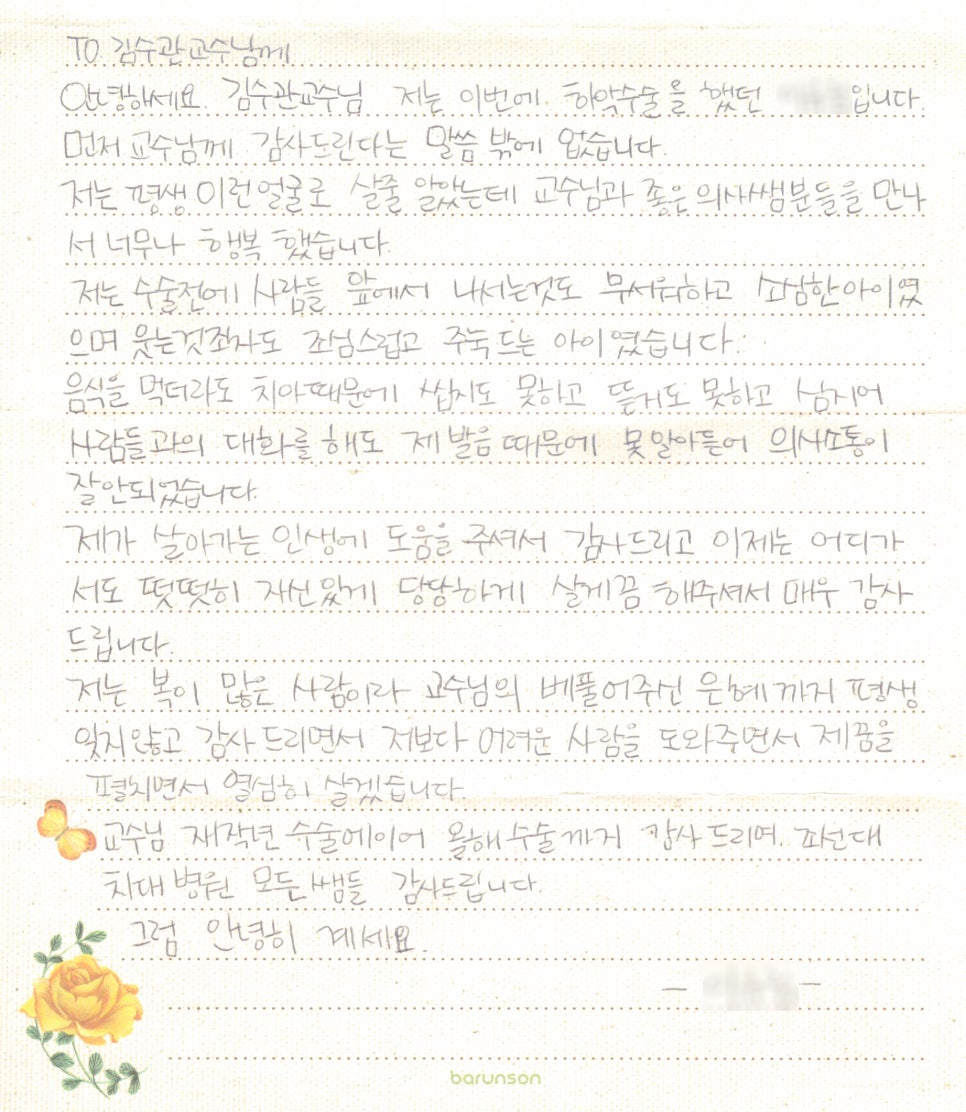 TO. 김수관교수님께
안녕하세요. 김수관교수님 저는 이번에 하악수술을 했던 입니다.
먼저 교수님께 감사드린다는 말씀 밖에 없습니다.
저는 평생 이런얼굴로 살줄 알았는데 교수님과 좋은 의사쌤분들을 만나
서 너무나 행복 했습니다.
저는 수술전에 사람들 앞에서 나서는것도 무서워하고 소심한아이였
으며 웃는것조차도 조심스럽고 주눅드는 아이였습니다.
음식을 먹더라도 치아때문에 씹지도 못하고 뜯지도 못하고 심지어
사람들과의 대화를 해도 제 발음 때문에 못알아들어 의사소통이
잘안되었습니다.
제가 살아가는 인생에 도움을 주셔서 감사드리고 이제는 어디가
서도 떳떳히 자신있게 당당하게 살게끔 해주셔서 매우 감사
드립니다.
저는 복이 많은 사람이라 교수님의 베풀어주신 은혜까지 평생
잊지않고 감사 드리면서 저보다 어려운 사람을 도와주면서 제꿈을
펼치면서 열심히 살겠습니다.
교수님 재작년 수술에이어 올해수술까지 감사 드리며. 조선대
치대 병원 모든쌤들 감사드립니다.
그럼 안녕히 계세요.
barunson